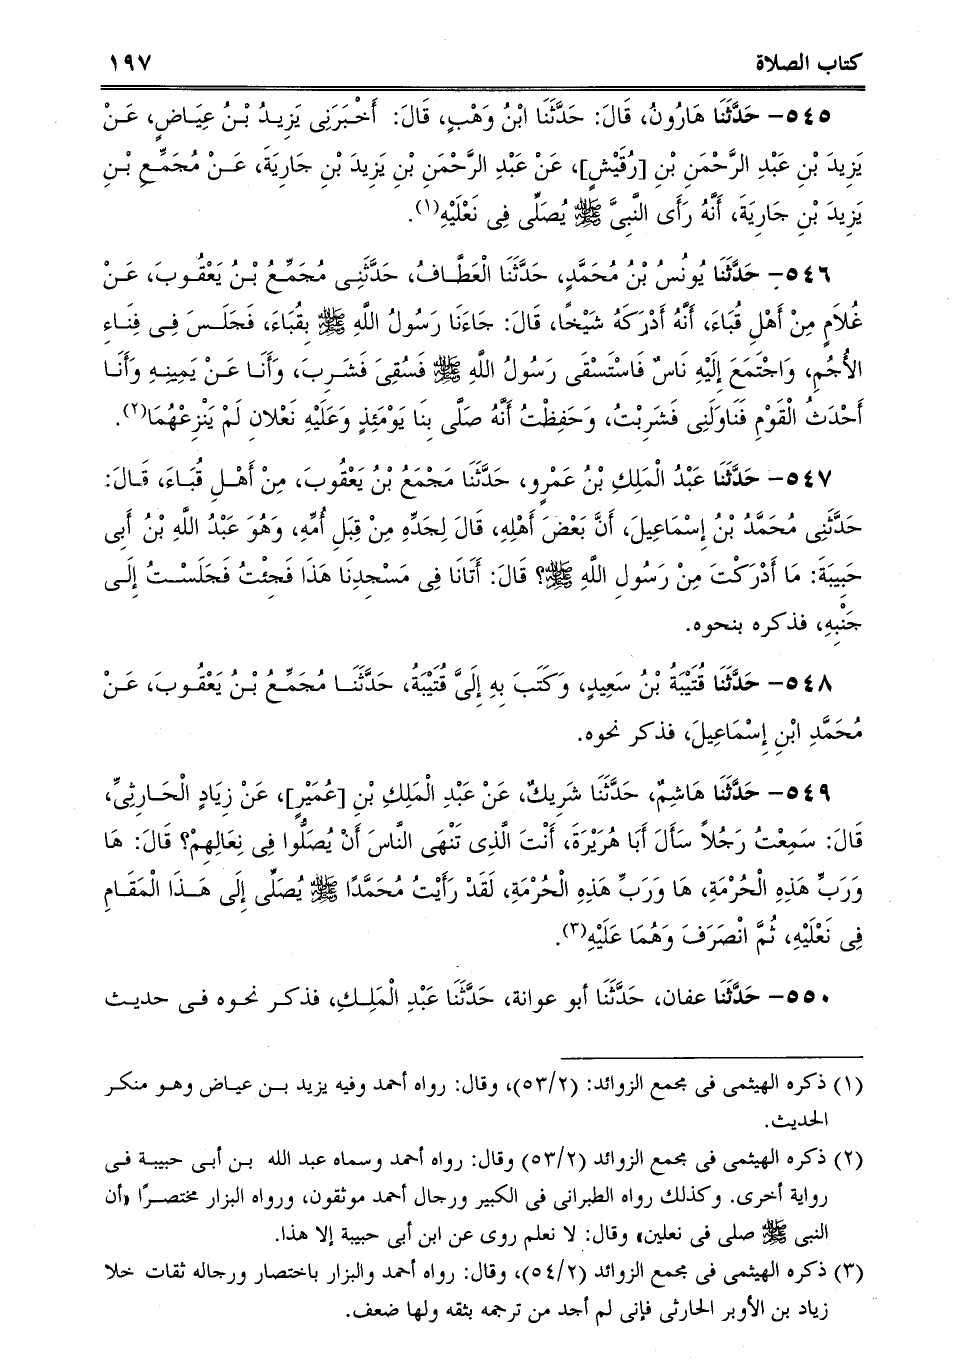 كتاب الصلاة ١٩٧
٥٤٥- حَدَّثَنَا هَارُونُ، قَالَ: حَدَّثَنَا ابْنُ وَهْبٍ، قَالَ: أَخْبَرَنِى يَزِيدُ بْنُ عِيَاضٍ، عَنْ
يَزِيدَ بْنِ عَبْدِ الرَّحْمَنِ بْنِ [رُقَيْشٍ]، عَنْ عَبْدِ الرَّحْمَنِ بْنِ يَزِيدَ بْنِ جَارِيَةَ، عَنْ مُجَمِّعِ بْنِ
يَزِيدَ بْنِ جَارِيَةَ، أَنَّهُ رَأَى النَّبِىَّ ﷺ يُصَلِّى فِى نَعْلَيْهِ(١).
٥٤٦- حَدَّثَنَا يُونُسُ بْنُ مُحَمَّدٍ، حَدَّثَنَا الْعَطَّافُ، حَدَّثَنِى مُجَمِّعُ بْنُ يَعْقُوبَ، عَنْ
غُلَامٍ مِنْ أَهْلِ قُبَاءَ، أَنَّهُ أَدْرَكَهُ شَيْخًا، قَالَ: جَاءَنَا رَسُولُ اللَّهِ ﷺ بِقُبَاءَ، فَجَلَسَ فِى فِنَاءِ
الأُجُمِ، وَاجْتَمَعَ إِلَيْهِ نَاسٌ فَاسْتَسْقَى رَسُولُ اللَّهِ ﷺ فَسُقِىَ فَشَرِبَ، وَأَنَا عَنْ يَمِينِهِ وَأَنَا
أَحْدَثُ الْقَوْمِ فَنَاوَلَنِى فَشَرِبْتُ، وَحَفِظْتُ أَنَّهُ صَلَّى بِنَا يَوْمَئِذٍ وَعَلَيْهِ نَعْلَانِ لَمْ يَنْزِعْهُمَا(٢).
٥٤٧- حَدَّثَنَا عَبْدُ الْمَلِكِ بْنُ عَمْرٍو، حَدَّثَنَا مَجْمَعُ بْنُ يَعْقُوبَ، مِنْ أَهْلِ قُبَاءَ، قَالَ:
حَدَّثَنِى مُحَمَّدُ بْنُ إِسْمَاعِيلَ، أَنَّ بَعْضَ أَهْلِهِ، قَالَ لِجَدِّهِ مِنْ قِبَلِ أُمِّهِ، وَهُوَ عَبْدُ اللَّهِ بْنُ أَبِى
حَبِيبَةَ: مَا أَدْرَكْتَ مِنْ رَسُولِ اللَّهِ ﷺ؟ قَالَ: أَتَانَا فِى مَسْجِدِنَا هَذَا فَجِئْتُ فَجَلَسْتُ إِلَى
جَنْبِهِ، فذكره بنحوه.
٥٤٨- حَدَّثَنَا قُتَيْبَةُ بْنُ سَعِيدٍ، وَكَتَبَ بِهِ إِلَىَّ قُتَيْبَةُ، حَدَّثَنَا مُجَمِّعُ بْنُ يَعْقُوبَ، عَنْ
مُحَمَّدِ ابْنِ إِسْمَاعِيلَ، فذكر نحوه.
٥٤٩- حَدَّثَنَا هَاشِمٌ، حَدَّثَنَا شَرِيكٌ، عَنْ عَبْدِ الْمَلِكِ بْنِ [عُمَيْرٍ]، عَنْ زِيَادٍ الْحَارِثِىِّ،
قَالَ: سَمِعْتُ رَجُلاً سَأَلَ أَبَا هُرَيْرَةَ، أَنْتَ الَّذِى تَنْهَى النَّاسَ أَنْ يُصَلُّوا فِى نِعَالِهِمْ؟ قَالَ: هَا
وَرَبِّ هَذِهِ الْحُرْمَةِ، هَا وَرَبِّ هَذِهِ الْحُرْمَةِ، لَقَدْ رَأَيْتُ مُحَمَّدًا ﷺ يُصَلِّى إِلَى هَذَا الْمَقَامِ
فِى نَعْلَيْهِ، ثُمَّ انْصَرَفَ وَهُمَا عَلَيْهِ(٣).
٥٥٠- حَدَّثَنَا عفان، حَدَّثَنَا أبو عوانة، حَدَّثَنَا عَبْدِ الْمَلِكِ، فذكر نحوه فى حديث
(١) ذكره الهيثمى فى مجمع الزوائد: (٥٣/٢)، وقال: رواه أحمد وفيه يزيد بن عياض وهو منكر
الحديث.
(٢) ذكره الهيثمى فى مجمع الزوائد (٥٣/٢) وقال: رواه أحمد وسماه عبد الله بن أبى حبيبة فى
رواية أخرى. وكذلك رواه الطبرانى فى الكبير ورجال أحمد موثقون، ورواه البزار مختصرًا «أن
النبى ﷺ صلى فى نعلين» وقال: لا نعلم روى عن ابن أبى حبيبة إلا هذا.
(٣) ذكره الهيثمى فى مجمع الزوائد (٥٤/٢)، وقال: رواه أحمد والبزار باختصار ورجاله ثقات خلا
زياد بن الأوبر الحارثى فإنى لم أجد من ترجمه بثقه ولها ضعف.